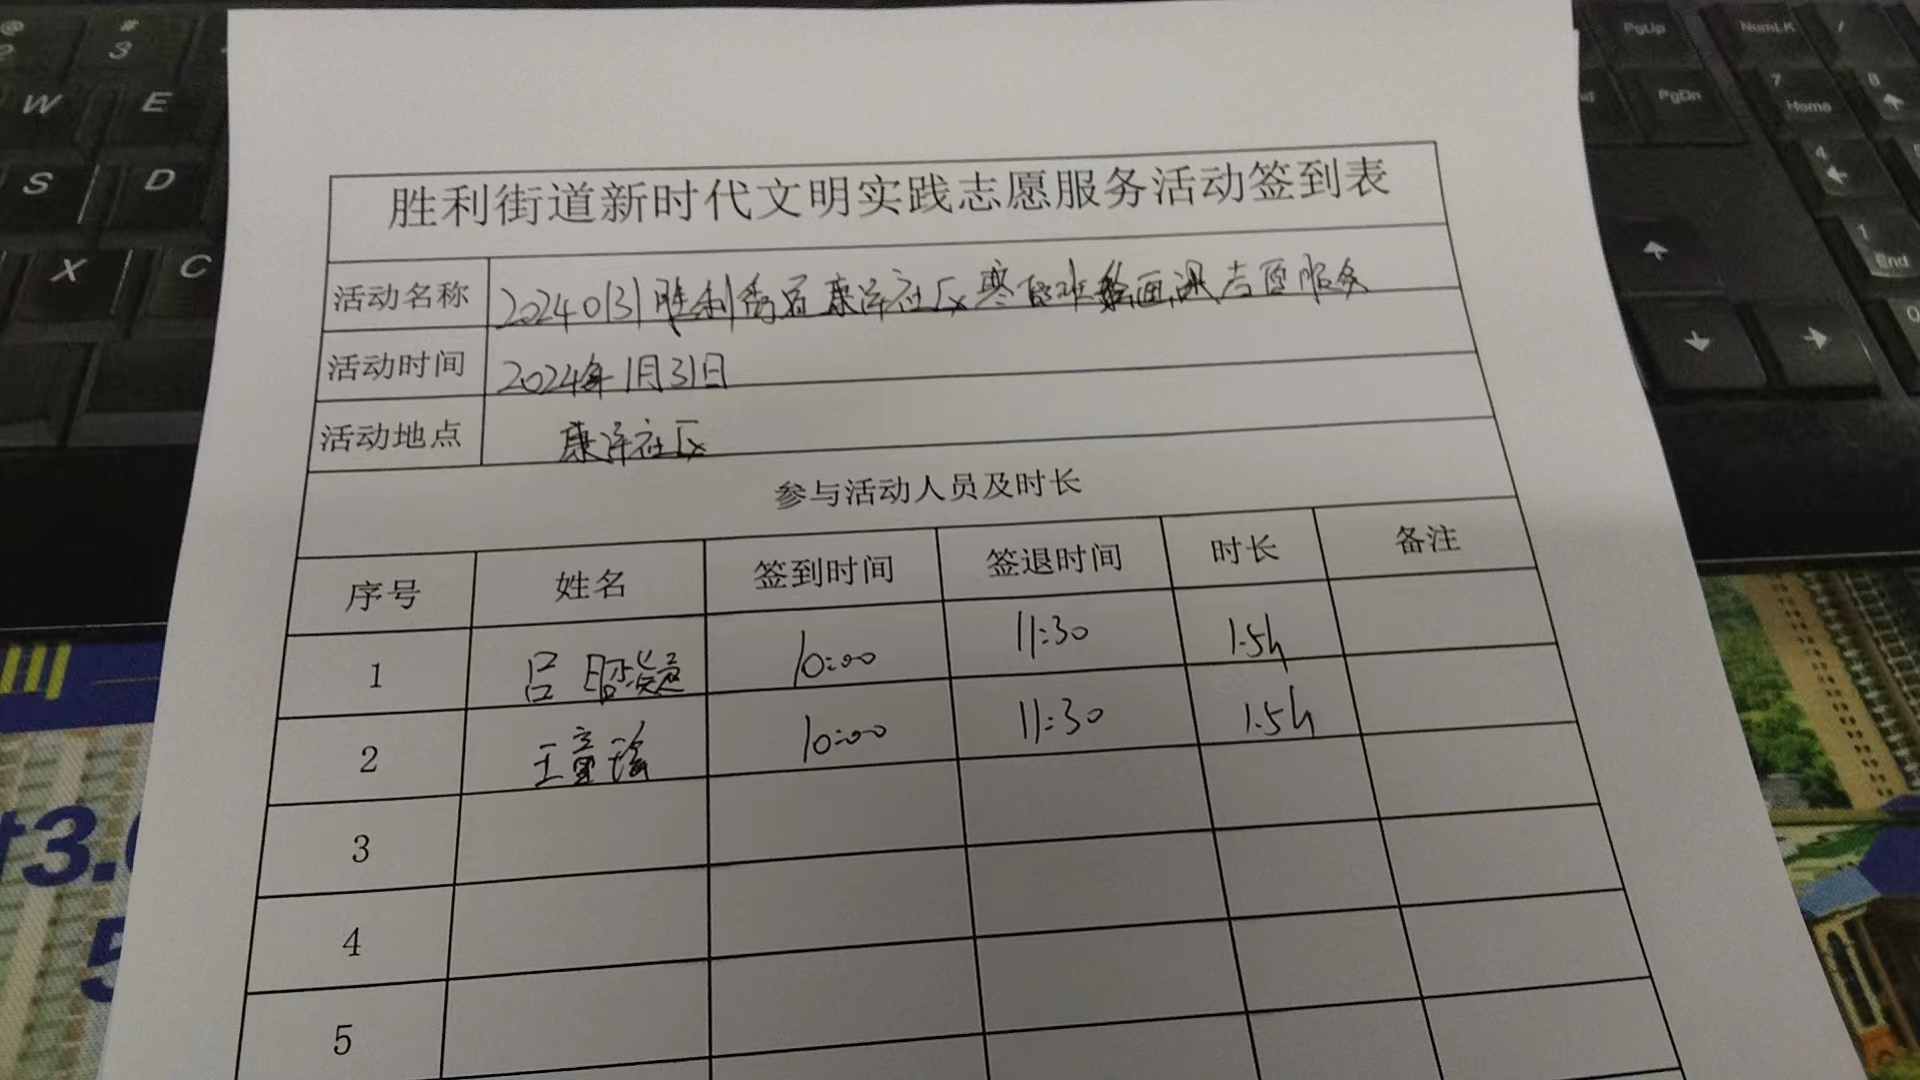 胜利街道新时代文明实践志愿服务活动签到表
活动名称 20240131胜利街道康泽社区寒假班绘画课志愿服务
活动时间 2024年1月31日
活动地点 康泽社区
参与活动人员及时长
序号 姓名 签到时间 签退时间 时长 备注
1 吕 10:00 11:30 1.5h
2 王童瑶 10:00 11:30 1.5h
3
4
5
@ 2
# 3
W E
S D
X C
PgUp
PgDn
NumLK
/
7 Home
8
4
1 End
0